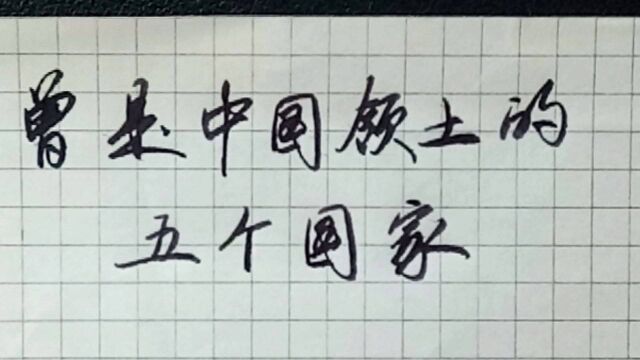 曾是中国领土的
五个国家